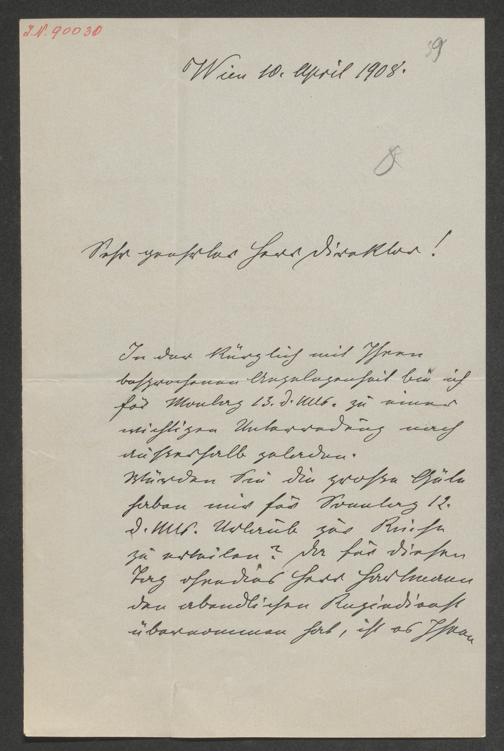 I.N. 90030
39
Wien 10. April 1908.
8
Sehr geehrter Herr Direktor!
In der kürzlich mit Ihnen
besprochenen Angelegenheit bin ich
für Montag 13. d. Mts. zu einer
wichtigen Unterredung nach
außerhalb geladen.
Würden Sie die große Güte
haben mir für Sonntag 12.
d. Mts. Urlaub zur Reise
zu erteilen? Da für diesen
Tag ohnedies Herr Hartmann
den abendlichen Regiedienst
übernommen hat, ist es Ihnen